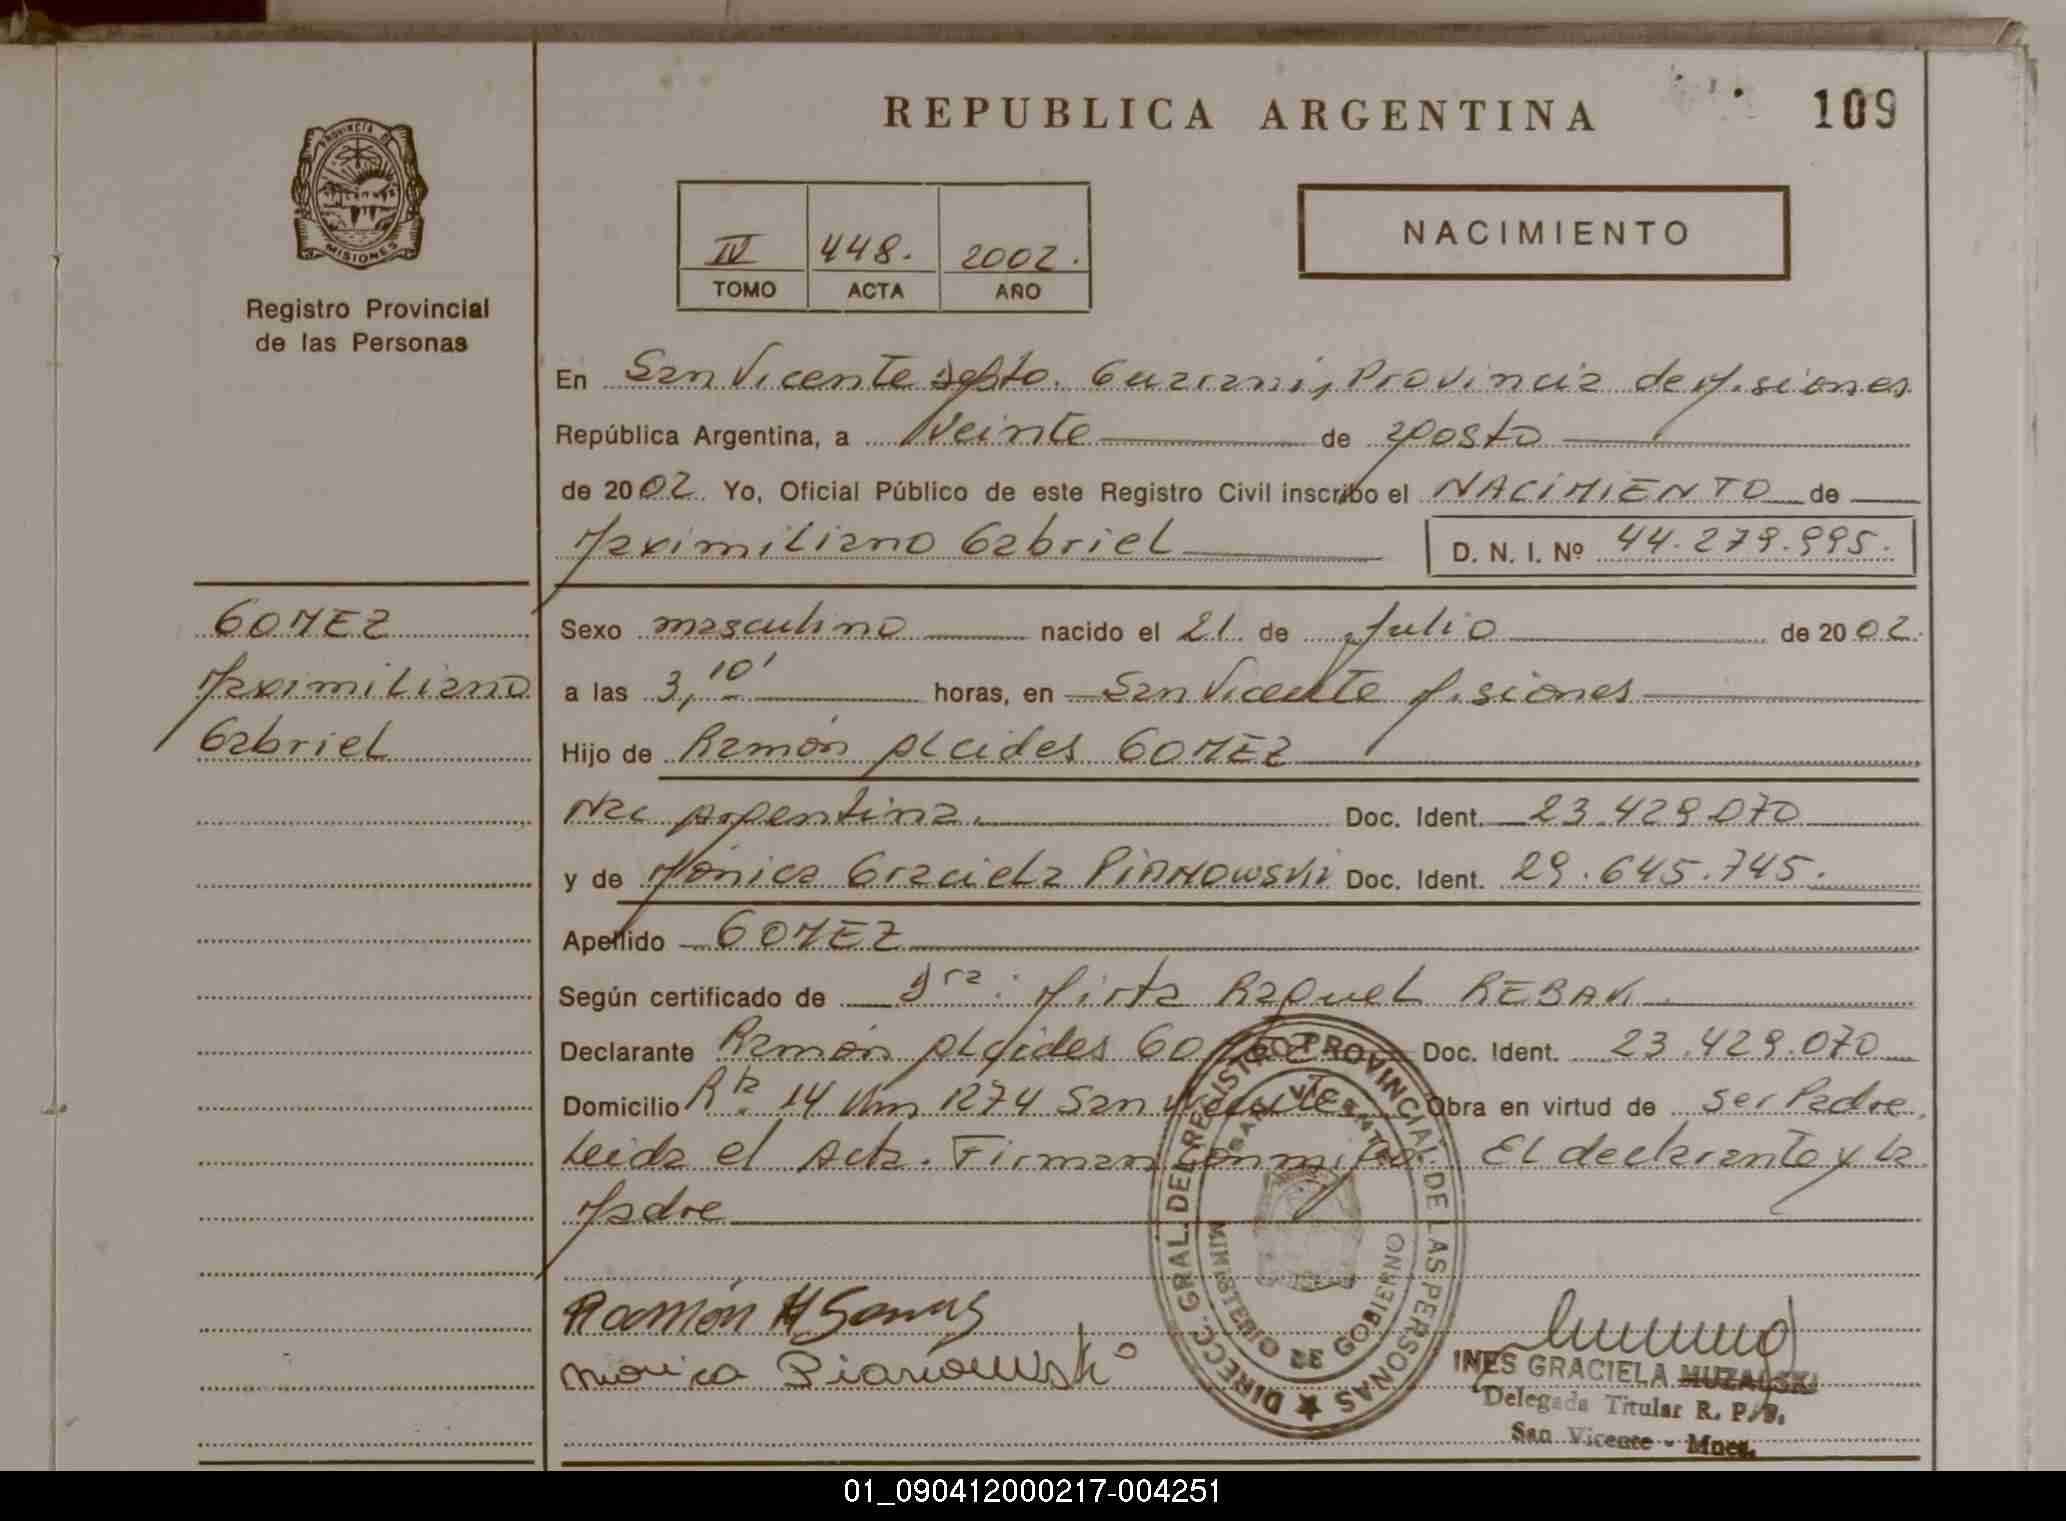 REPUBLICA ARGENTINA
109
PROVINCIA DE
MISIONES
Registro Provincial
de las Personas
IV 448. 2002.
TOMO ACTA AÑO
NACIMIENTO
En San Vicente Depto. Guarani, Provincia de Misiones
República Argentina, a Veinte de agosto
de 2002. Yo, Oficial Público de este Registro Civil inscribo el NACIMIENTO de
Maximiliano Gabriel D. N. I. Nº 44.279.995.
GOMEZ
Maximiliano
Gabriel
Sexo masculino nacido el 21 de Julio de 2002.
a las 3,10' horas, en San Vicente Misiones
Hijo de Ramón Alcides GOMEZ
Nac Argentina. Doc. Ident. 23.429.070
y de Mónica Graciela PIANOWSKI Doc. Ident. 29.645.745.
Apellido GOMEZ
Según certificado de Dra: Mirta Raquel REBAK
Declarante Ramón Alcides GOMEZ Doc. Ident. 23.429.070
Domicilio Rta. 14 Km 1274 San Vicente Obra en virtud de ser Padre.
Leida el Acta. Firman conmigo El declarante y la
Madre
DIRECC. GRAL. DEL REGISTRO PROVINCIAL DE LAS PERSONAS
SAN VICENTE
MINISTERIO DE GOBIERNO
Ramón
Monica Pianowski
INES GRACIELA MUZALSKI
Delegada Titular R. P. P.
San Vicente - Mnes.
01_090412000217-004251